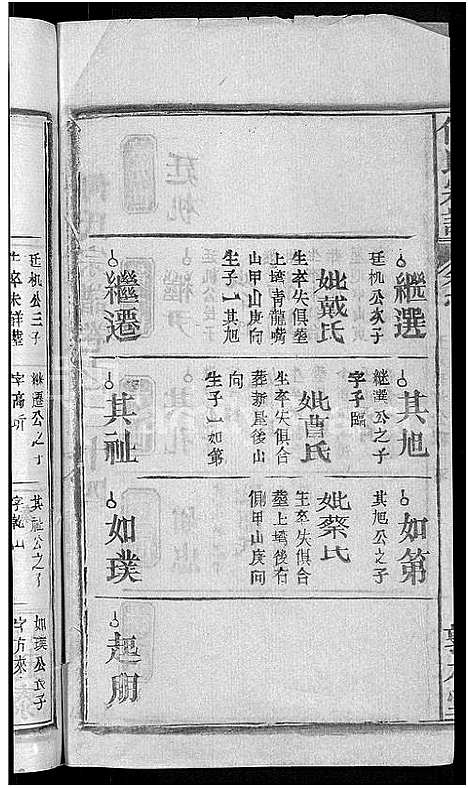 繼選
廷机公次子
妣戴氏
生卒失俱葬
上塆青龍嘴
山甲山庚向
生子一其旭
繼遷
其旭
繼選公之子
字子臨
妣曹氏
生卒失俱合
葬新屋後山
向
生子一如第
其祉
如第
其旭公之子
妣蔡氏
生卒失俱合
葬上塆後右
側甲山庚向
如璞
起朋
廷机公三子
生卒未詳葬
繼遷公之子
其祉公之子
字乾山
如璞公次子
字方來